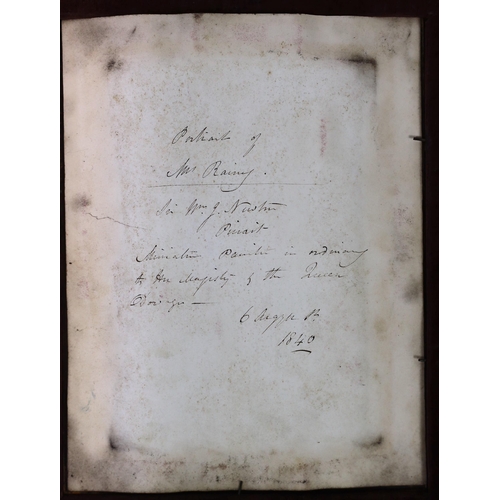 Portrait of
Mrs. Rainy.
Sir Wm J. Newton
Pinxit
Miniature Painter in ordinary
to Her Majesty & the Queen
Dowager —
6 Argyll St.
1840